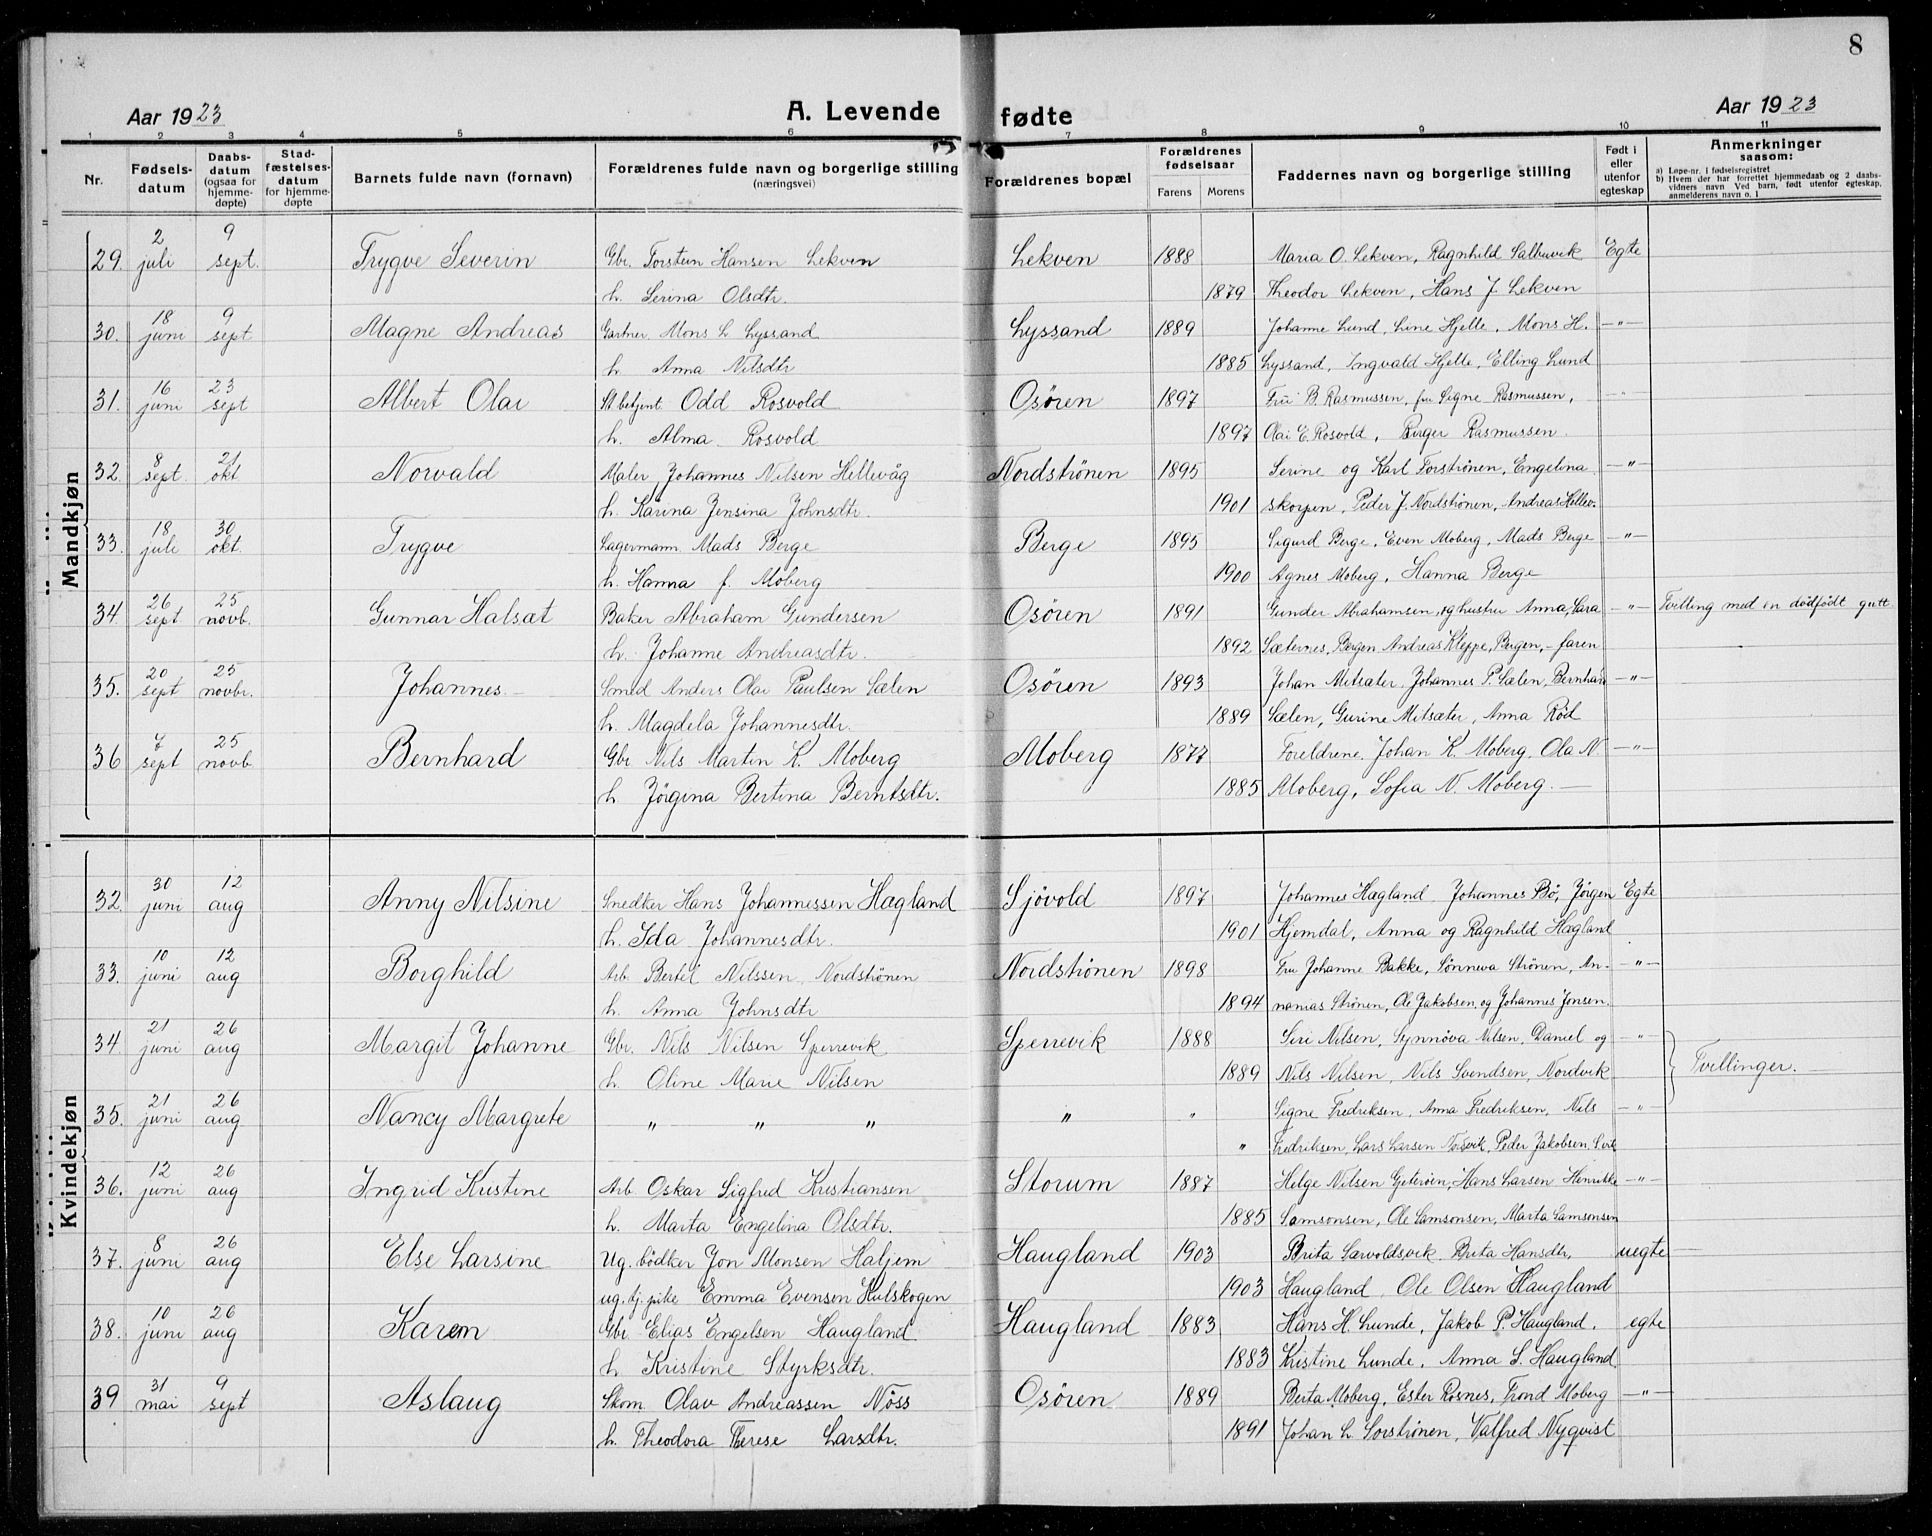 8
Aar 1923 A. Levende fødte Aar 1923
1 2 3 4 5 6 7 8 9 10 11
Nr. Fødselsdatum Daabsdatum (ogsaa for hjemmedøpte) Stadfæstelsesdatum for hjemmedøpte Barnets fulde navn (fornavn) Forældrenes fulde navn og borgerlige stilling (næringsvei) Forældrenes bopæl Forældrenes fødselsaar Farens Morens Faddernes navn og borgerlige stilling Født i eller utenfor egteskap Anmerkninger saasom:
a) Løpe-nr. i fødselsregistret
b) Hvem der har forrettet hjemmedaab og 2 daabsvidners navn Ved barn, født utenfor egteskap, anmelderens navn o. l
Mandkjøn
29. 2 juli 9 sept. Trygve Severin Gbr. Torstein Hansen Lekven Lekven 1888 Maria O. Lekven, Ragnhild Salbuvik Egte
h. Serina Olsdtr. 1879 Theodor Lekven, Hans J. Lekven
30. 18 juni 9 sept Magne Andreas Gartner Mons L. Lyssand Lyssand 1889 Johanne Lund, Line Hjelle, Mons H. -"-
h. Anna Nilsdtr 1885 Lyssand, Ingvald Hjelle, Elling Lund
31. 16 juni 23 sept Albert Olai St.betjent. Odd Rosvold Osøren 1897 Fru B. Rasmussen, fru Signe Rasmussen, -"-
h. Alma Rosvold 1897 Olai E. Rosvold, Birger Rasmussen.
32. 8 sept. 21 okt Norvald Maler Johannes Nilsen Hellevåg Nordstrønen 1895 Serine og Karl Forstrønen, Engelina -"-
h. Karina Jensina Johnsdtr. 1901 Skorpen, Peder J. Nordstrønen, Andreas Hellev.
33. 18 juli 30 okt. Trygve Lagermann Mads Berge Berge 1895 Sigurd Berge, Even Moberg, Mads Berge -"-
h. Hanna f. Moberg 1900 Agnes Moberg, Hanna Berge
34. 26 sept 25 novb. Gunnar Halsat Baker Abraham Gundersen Osøren 1891 Gunder Abrahamsen, og hustru Anna, Sara -"- Tvilling med en dödfödt gutt.
h. Johanne Andreasdtr. 1892 Sælevnes, Bergen Andreas Kleppe, Bergen, - faren
35. 20 sept 25 novbr. Johannes Smed Anders Olai Paulsen Sælen Osøren 1893 Johan Mitsæter, Johannes P. Sælen, Bernhard -"-
h. Magdela Johannesdtr. 1889 Sælen, Gurine Mitsæter, Anna Röd
36 7 sept 25 novb Bernhard Gbr Nils Martin K. Moberg Moberg 1877 Foreldrene, Johan K. Moberg, Ola N. -"-
h Jörgina Bertina Berntsdtr. 1885 Moberg, Sofia N. Moberg.
Kvindekjøn
32. 30 juni 12 aug Anny Nilsine Snedker Hans Johannessen Hægland Sjövold 1897 Johannes Hægland, Johannes Bö, Jørgen Egte
h. Ida Johannesdtr. 1901 Hjemdal, Anna og Ragnhild Hægland
33. 10 juni 12 aug Borghild Arb. Bertel Nilssen Nordstrønen Nordstrønen 1898 Fru Johanne Bakke, Sønneva Strønen, An- -"-
h. Anna Johnsdtr 1894 nanias Strønen, Ole Jakobsen og Johannes Jonsen.
34. 21 juni 26 aug Margit Johanne Gbr. Nils Nilsen Sperrevik Sperrevik 1888 Siri Nilsen, Synnöva Nilsen, Daniel og -"- Tvillinger.
h. Oline Marie Nilsen 1889 Nils Nilsen, Nils Svendsen, Nordvik
35. 21 juni 26 aug Nancy Margrete " " " " " Signe Fredriksen, Anna Fredriksen, Nils -"-
" Fredriksen, Lars Larsen, Peder Jakobsen
36. 12 juni 26 aug Ingrid Kristine Arb. Oskar Sigfred Kristiansen Storum 1887 Helge Nilsen Geterøen, Hans Larsen Henrikke -"-
h. Marta Engelina Olsdtr. 1885 Samsonsen, Ole Samsonsen, Marta Samsonsen
37. 8 juni 26 aug Else Larsine Ug. bödker Jon Monsen Haljem Haugland 1903 Brita Særvoldsvik, Brita Hansdtr. uegte
ug. tj. pike Emma Evensen Hulskogen 1903 Haugland, Ole Olsen Haugland
38. 10 juni 26 aug Karen Gbr. Elias Engelsen Haugland Haugland 1883 Hans H. Lunde, Jakob P. Haugland, egte
h Kristine Styrksdtr. 1883 Kristine Lunde, Anna S. Haugland
39 31 mai 9 sept Aslaug Skom. Olav Andreassen Nöss Osøren 1889 Berta Moberg, Ester Rosnes, Trond Moberg -"-
h. Theodora Therese Larsdtr. 1891 Johan L. Sørstrønen, Valfred Nyqvist